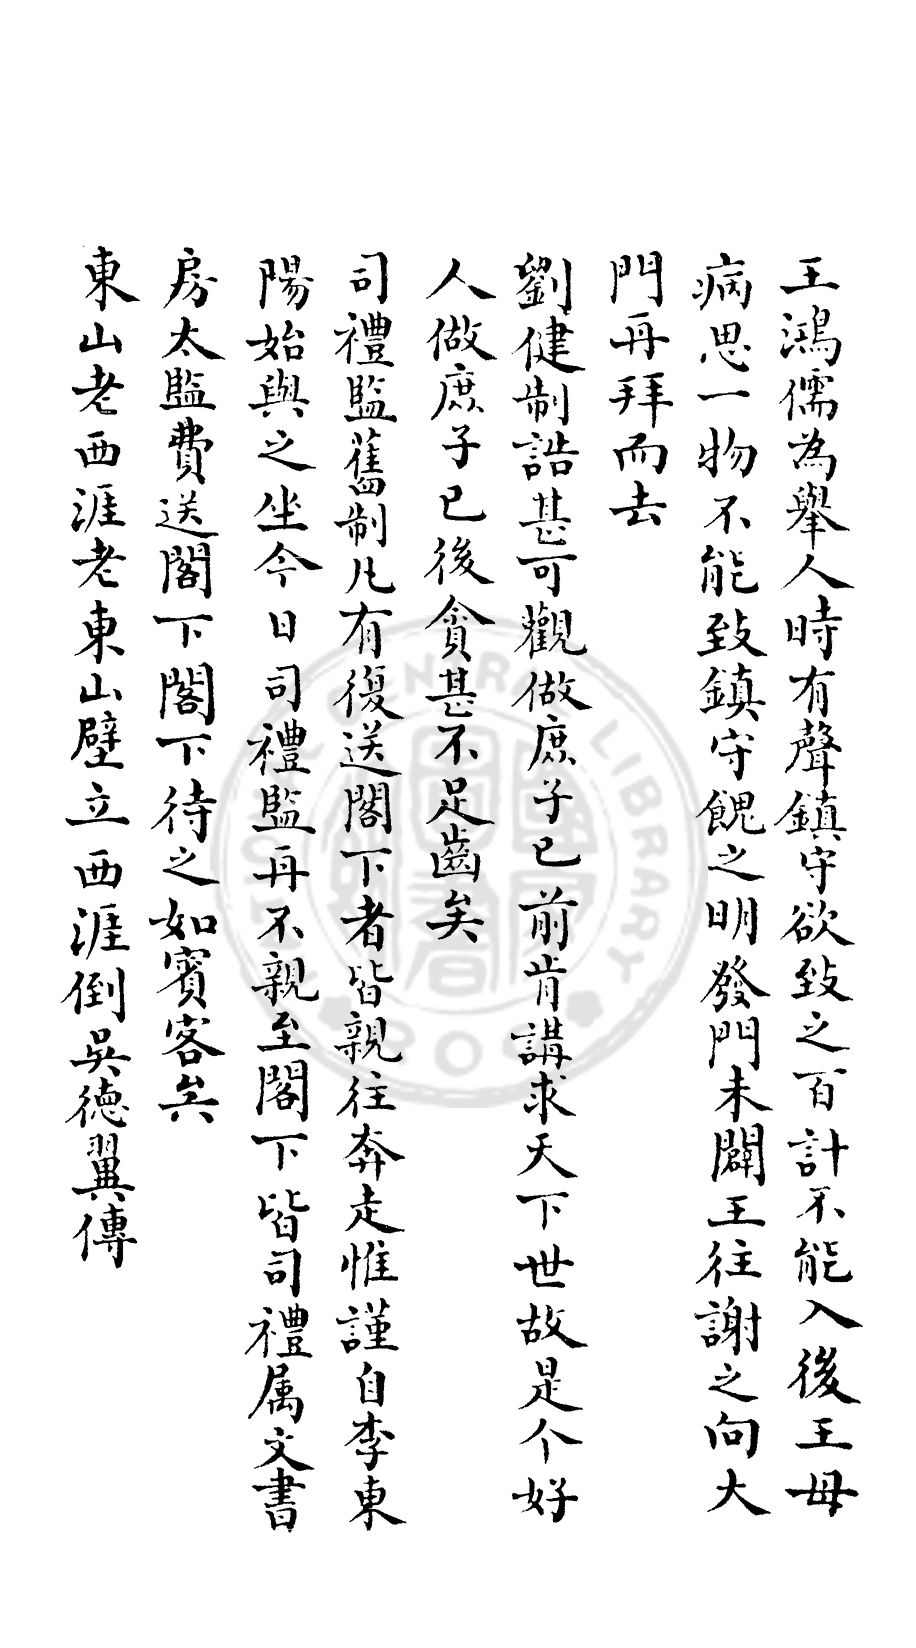 王鴻儒為舉人時有聲鎮守欲致之百計不能入後王母
病思一物不能致鎮守餽之明發門未闢王往謝之向大
門再拜而去
劉健制誥甚可觀做庶子已前肯講求天下世故是个好
人做庶子已後貪甚不足齒矣
司禮監舊制凡有復送閣下者皆親往奔走惟謹自李東
陽始與之坐今日司禮監再不親至閣下皆司禮属文書
房太監費送閣下閣下待之如賓客矣
東山老西涯老東山壁立西涯倒吳德翼傳
NATIONAL CENTRAL LIBRARY